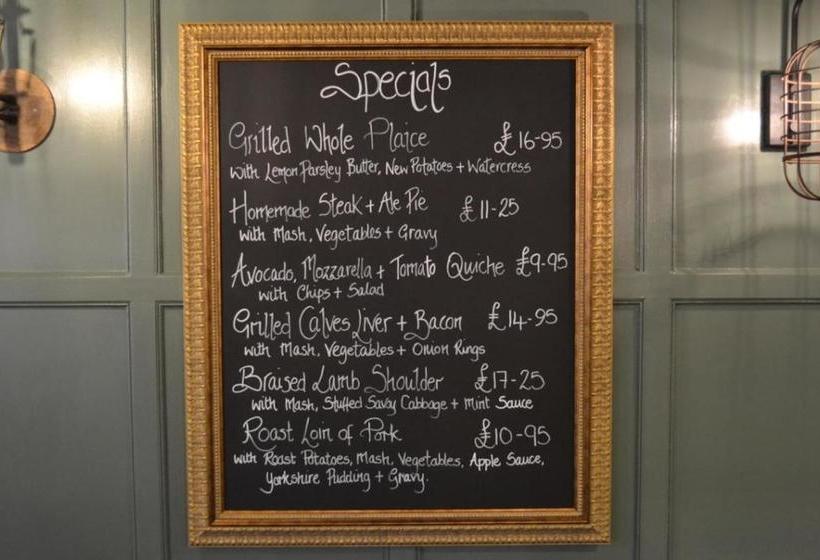 Specials
Grilled Whole Plaice £16-95
with Lemon Parsley Butter, New Potatoes + Watercress
Homemade Steak + Ale Pie £11-25
with Mash, Vegetables + Gravy
Avocado, Mozzarella + Tomato Quiche £9-95
with Chips + Salad
Grilled Calves Liver + Bacon £14-95
with Mash, Vegetables + Onion Rings
Braised Lamb Shoulder £17-25
with Mash, Stuffed Savoy Cabbage + Mint Sauce
Roast Loin of Pork £10-95
with Roast Potatoes, Mash, Vegetables, Apple Sauce,
Yorkshire Pudding + Gravy.